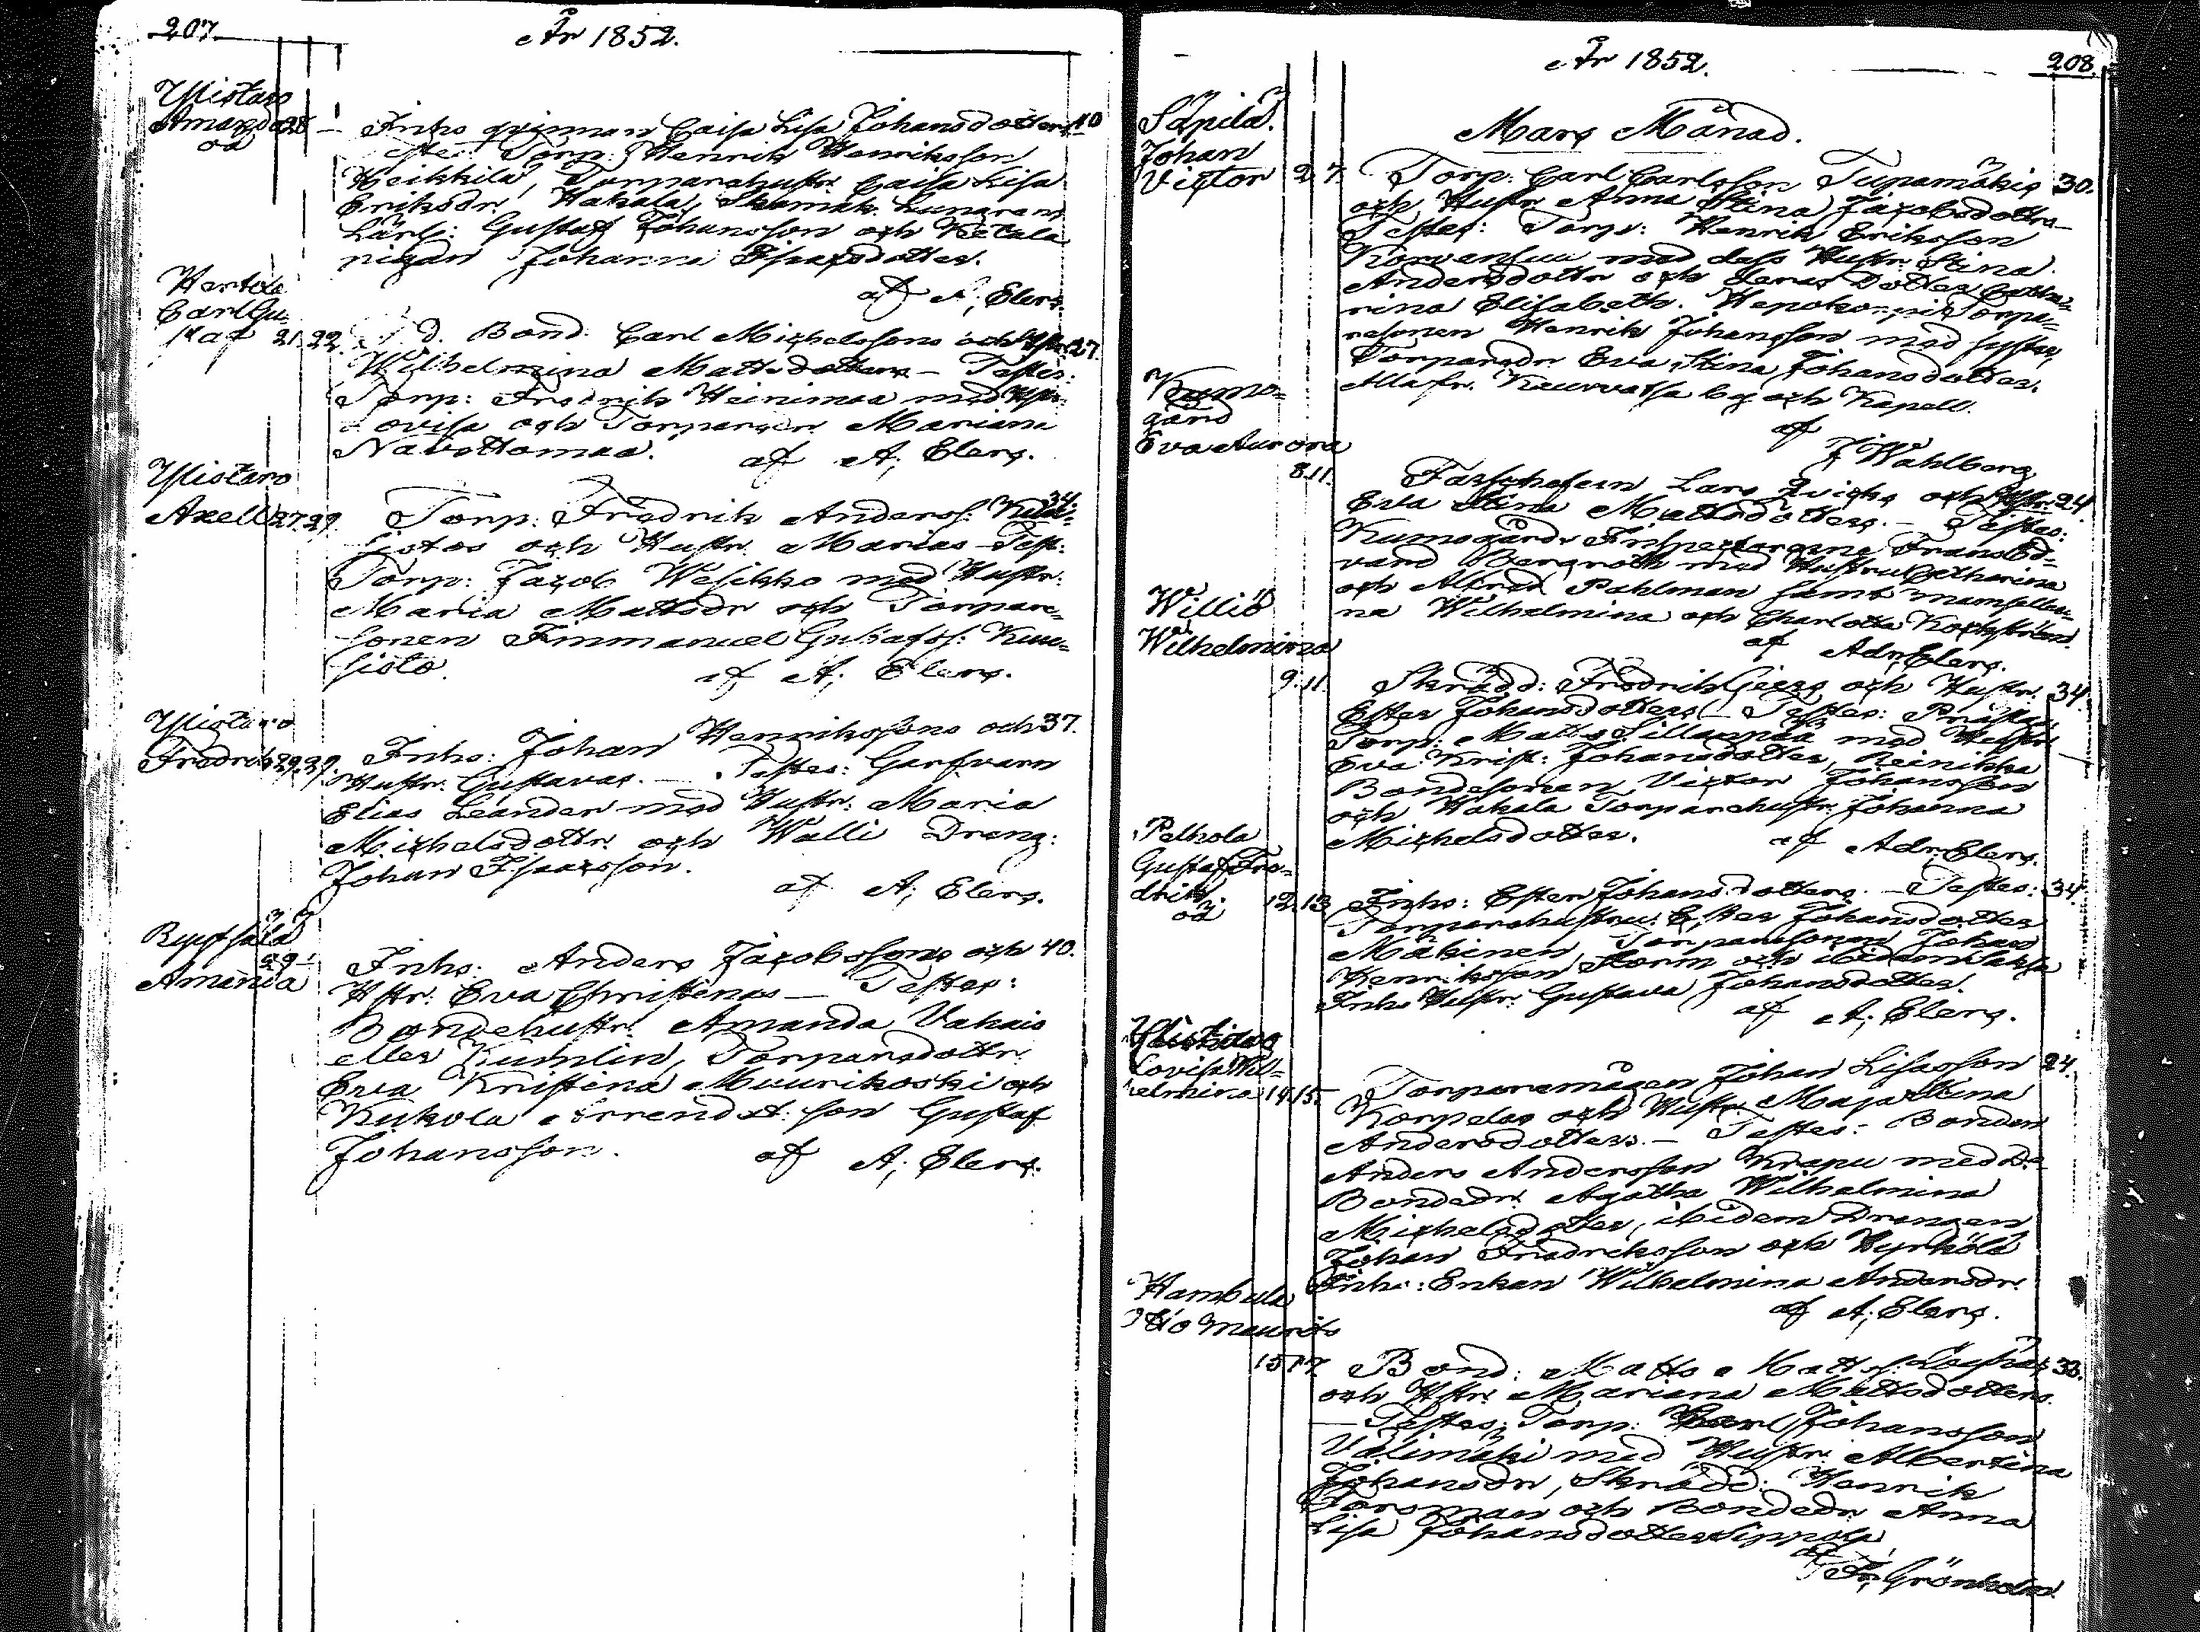 207.
År 1852.
Ylistaro
Amanda 28 — Inhs qvinnan Caisa Lisa Johansdotters 40
oä
Torp: Henrik Henriksson
Heikkilä, Torparehustr. Caisa Lisa
Eriksdr. Hakala, Skomak.
Lärl: Gustaf Johansson och Ketala
pigan Johanna Isaksdotter.
af A; Elers.
Carl Gu-
staf 21. 22. Bond. Carl Michelssons och Hstr. 27.
Wilhelmina Mattsdotters — Testes:
Torp: Fredrik Heinimaa med Hstr.
Lovisa och Mariana
Navettomaa. af A; Elers.
Ylistaro
Axel 27. 29. Torp: Fredrik Anderss: 34.
och Hustr. Marias — Test:
Torp: Jacob Wesikko med Hustr.
Maria Mattsdr och Torpare-
sonen Immanuel Gustafss: Kuu-
sisto. af A; Elers.
Ylistaro
Fredrik 29. 29. Inhs: Johan Henrikssons och 37.
Hustr. Gustavas. — Testes: Garfvarn
Elias Leander med Hustr. Maria
Michelsdottr. och Walli Dreng:
Johan Isaacsson.
af A; Elers.
29.
Amanda Inhs: Anders Jacobssons och 40.
Hstr. Eva Christinas — Testes:
Bondehustr. Amanda Vakais
eller Kumlin, Torparedottr.
Eva Kristina Muurikoski och
Kukola Arrendat: son Gustaf
Johansson. af A; Elers.
208.
År 1852.
Mars Månad.
Säpilä.
Johan
Victor 2. 7. Torp: Carl Carlsson Tupamäkis 30.
och Hustr. Anna Stina Jacobsdottrs
Testes: Torp: Henrik Eriksson
Korvensuu med dess Hustr. Stina
Andersdottr och deras Dotter Catha-
rina Elisabeth. Hepokorpi Torpa-
resonen Henrik Johansson med syster,
Torparedr. Eva Stina Johansdotter.
Alla fr. Keurvatsa by och Kapell.
af
J. Wahlberg
Kumo-
gård
Eva Aurora
8. 11. Lars Qvicks och Hstr. 24.
Eva Stina Mattsdotters. — Testes:
Kumogårds Inspectorerne Frans Ed-
vard Bergroth med Hustru Catharina
och Alfred Pahlman samt mamseller-
na Wilhelmina och Charlotta
af Adr. Elers.
Williö
Wilhelmina
9. 11. Skrädd: Fredrik och Hustr. 34.
Ester Johansdotters — Testes:
Torp: Matts Sillanpää med Hustr.
Eva Krist: Johansdotter, Reinikka
Bondesonen Victor Johansson
och Hakala Torparehustr. Johanna
Michelsdotter. af Adr. Elers.
Pelhola
Gustaf Fre-
drik. 12. 13 Inhs: Ester Johansdotters. — Testes: 34.
oä
Torparehustru: Ester Johansdotter
Mäkinen, Torparesonen Johan
Henriksson Storm och
Inhs Hustr. Gustava Johansdotter.
af A; Elers.
Lovisa Wil-
helmina 14. 15. Torparemågen Johan Lisasson 24.
Korpelas och Hustr. Maja Stina
Andersdotters. — Testes: Bonden
Anders Andersson Krapu med D:o
Bondedr. Agatha Wilhelmina
Michelsdotter, ibidem Drengen
Johan Fredriksson och Hyrkölä
Inhs: Enkan Wilhelmina Andersdr.
af A; Elers.
Hambula
15. 17. Bond: Matts Matts: 33.
och Hstr. Mariana Mattsdotters.
— Testes: Torp: Carl Johansson
Välimäki med Hustr. Albertina
Johansdr, Skrädd: Henrik
Forsman och Bondedr. Anna
Lisa Johansdotter
af Fr. Grönholm.